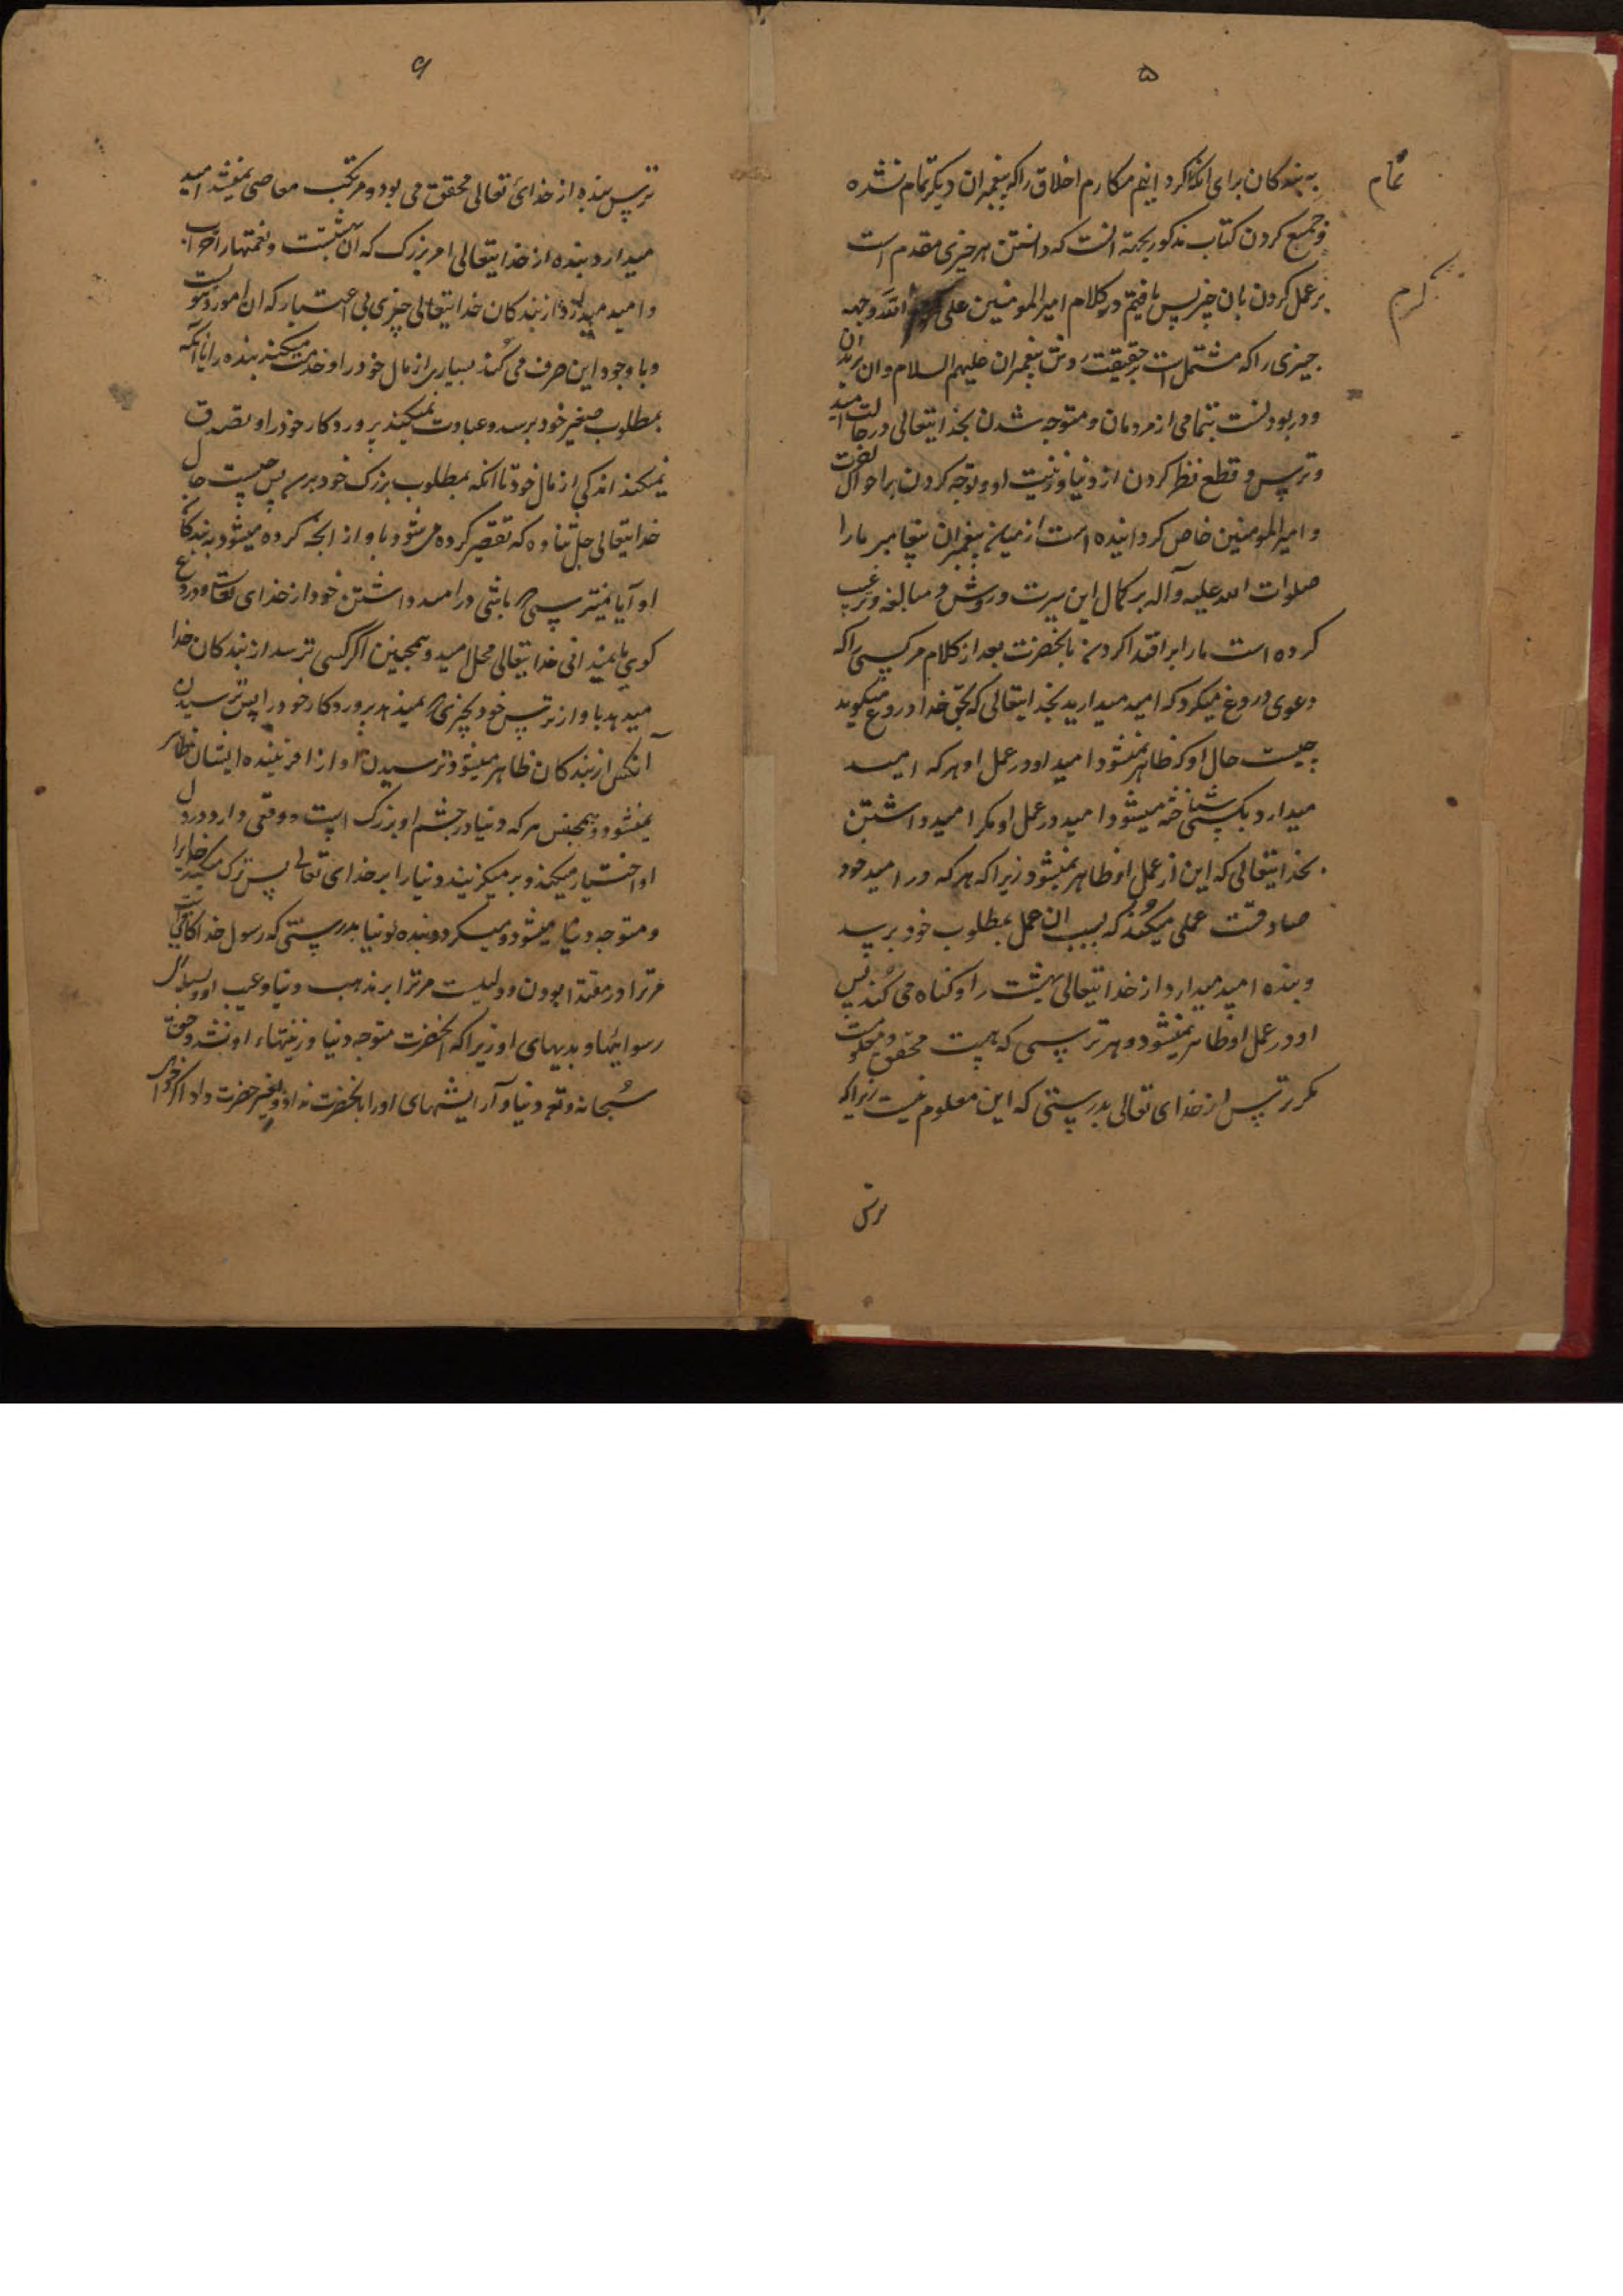 ۵
تمام
به بندکان برای انکه اکرد اینم مکارم اخلاق را که پیغمبران دیکر تمام نشده
و جمع کردن کتاب مذکور بجهة انست که دانستن هر چیزی مقدم است
بر عمل کردن بان چیز پس یافتیم در کلام امیر المومنین علی کرم الله وجهه
کرم
چیزی را که مشتمل است بر حقیقت روش پیغمبران علیهم السلام و ان بریدن
و در بودنست بتمامی از مردمان و متوجه شدن بخدایتعالی در حالت امید
و ترس و قطع نظر کردن از دنیا و زینت او و توجه کردن بر احوال اخرت
و امیر المومنین خاص کردانیده است از میانه پیغمبران پیغامبر ما را
صلوات الله علیه و آله بر کمال این سیرت و روش و مبالغه و ترغیب
کرده است ما را بر اقتدا کردن بانحضرت بعد از کلام هر کسی را که
دعوی دروغ میکرد که امید میدارید بخدایتعالی که بحق خدا دروغ میکوید
چیست حال او که ظاهر نمیشود امید او در عمل او هر که امید
میدارد بکسی شناخته میشود امید در عمل او مکر امید داشتن
بخدایتعالی که این از عمل او ظاهر نمیشود زیرا که هر که در امید خود
صادقست عملی میکند که بسبب ان عمل بمطلوب خود برسد
و بنده امید میدارد از خدایتعالی بهشت را و کناه می کند پس
او در عمل او ظاهر نمیشود و هر ترسی که هست محقق و معلومست
مکر ترس از خدای تعالی بدرستی که این معلوم نیست زیرا که
ترس
۶
ترس بنده از خدای تعالی محقق می بود و مرتکب معاصی نمیشد امید
میدارد بنده از خدایتعالی امر بزرک که ان بهشتست و نعمتهار اخرت
و امید میدارد از بندکان خدایتعالی چیزی بی اعتبار که ان امور دنیوست
و با وجود این صرف می کند بسیاری از مال خود را و خدمت میکند بنده را تا انکه
بمطلوب صغیر خود برسد و عبادت نمیکند پروردکار خود را و تصدق
نمیکند اندکی از مال خود تا انکه بمطلوب بزرک خود برسد پس چیست حال
خدایتعالی جل ثناوه که تقصیر کرده می شود باو از انچه کرده میشود به بندکان
او آیا نمیترسی که باشی در امید داشتن خود از خدای تعالی دروغ
کوی یا نمیدانی خدایتعالی محل امید و همچنین اکر کسی ترسد از بندکان خدا
میدهد باو از ترس خود چیزی که نمیدهد پروردکار خود را پس ترسیدن
آنکس از بندکان ظاهر میشود و ترسیدن او از افریننده ایشان ظاهر
نمیشود و همچنین هر که دنیا در چشم او بزرک است و وقعی دارد در دل
او اختیار میکند و بر میکزیند دنیا را بر خدای تعالی پس ترک میکند خدا را
و متوجه دنیا میشود و میکردد بنده دنیا بدرستی که رسول خدا کافیست
مر ترا در مقتدا بودن و دلیلست مر ترا بر مذهب دنیا و عیب او و بسیاری
رسوائیها و بدیهای او زیرا که انحضرت متوجه دنیا و زینتهاء او نشد و حق
سبحانه و تعه دنیا و آرایشهای او را بانحضرت نداد و بغیر حضرت داد اکر خواهی